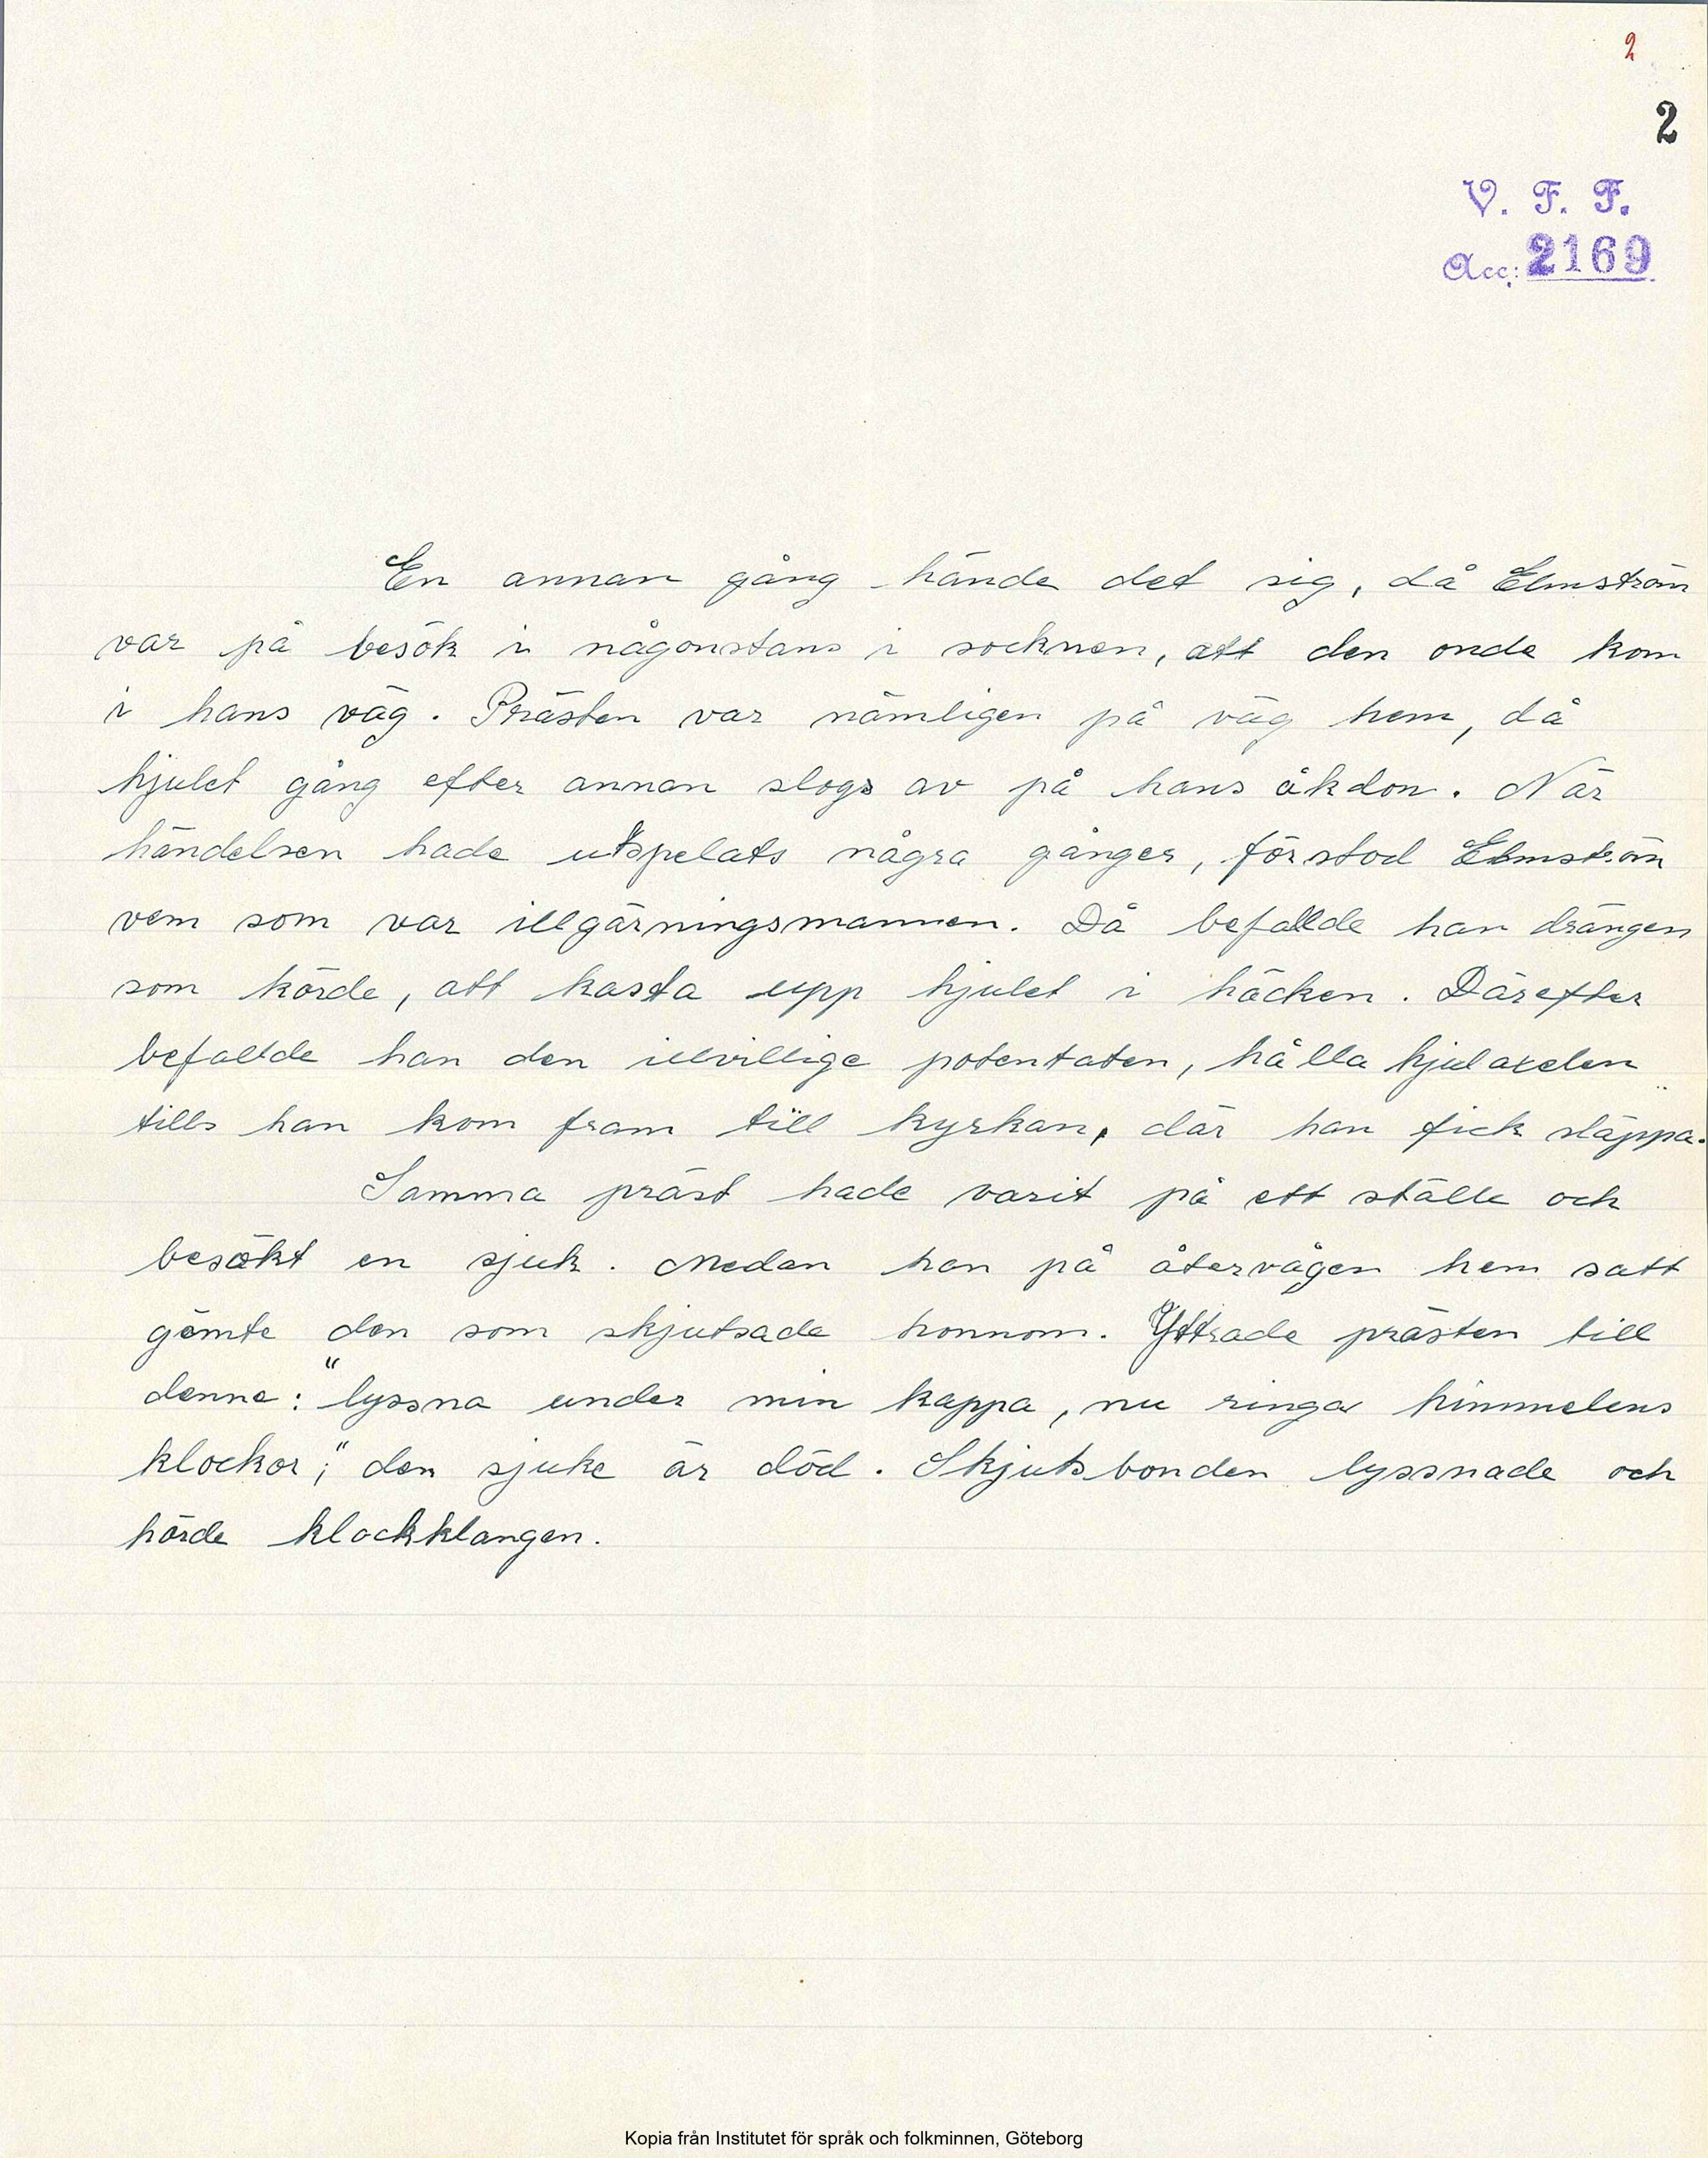 2
2
V. F. F.
Acc: 2169
En annan gång hände det sig, då Elmström
var på besök i någonstans i socknen, att den onde kom
i hans väg. Prästen var nämligen på väg hem, då
hjulet gång efter annan slogs av på hans åkdon. När
händelsen hade utspelats några gånger, förstod Elmström
vem som var illgärningsmannen. Då befallde han drängen
som körde, att kasta upp hjulet i häcken. Därefter
befallde han den illvillige potentaten, hålla hjulaxelen
tills han kom fram till kyrkan, där han fick släppa.
Samma präst hade varit på ett ställe och
besökt en sjuk. Medan han på återvägen hem satt
gämte den som skjutsade honnom. Yttrade prästen till
denne: "lyssna under min kappa, nu ringa himmelens
klockor;" den sjuke är död. Skjutsbonden lyssnade och
hörde klockklangen.
Kopia från Institutet för språk och folkminnen, Göteborg